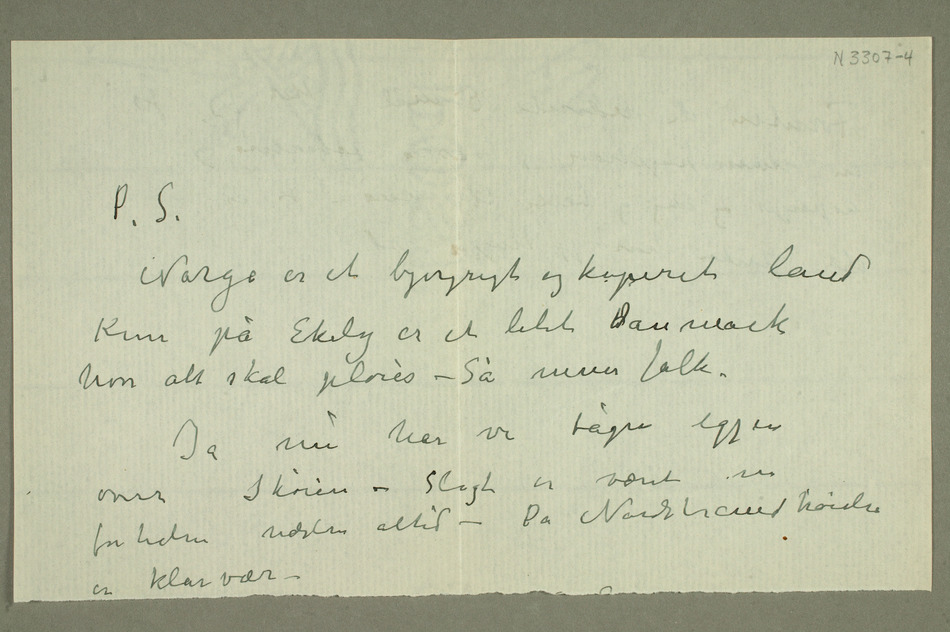 N 3307-4
P. S.
Norge er et og kuperet land
Kun på Ekely er et lidet Danmark
hvor alt skal pløies – Så mener folk.
Ja nu har vi tågen igjen
over Skøien – Slagt er været
for næsten altid – På Nordstrand høiden
er klar vær –